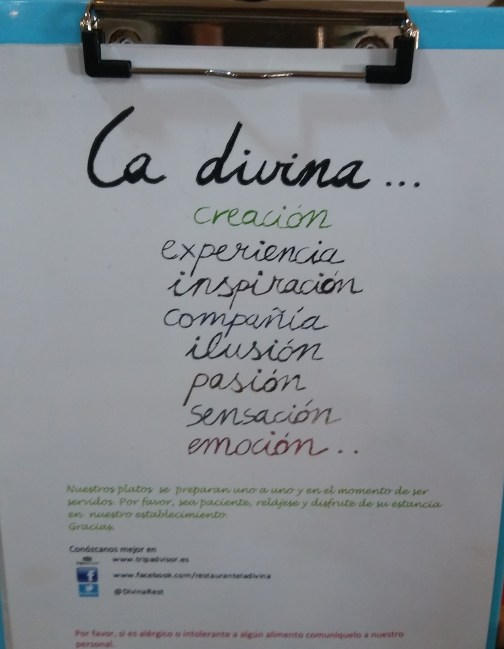 La divina...
creación
experiencia
inspiración
compañía
ilusión
pasión
sensación
emoción...
Nuestros platos se preparan uno a uno y en el momento de ser
servidos. Por favor, sea paciente, relájese y disfrute de su estancia
en nuestro establecimiento.
Gracias.
Conózcanos mejor en
www.tripadvisor.es
www.facebook.com/restauranteladivina
@DivinaRest
Por favor, si es alérgico o intolerante a algún alimento comuníquelo a nuestro
personal.